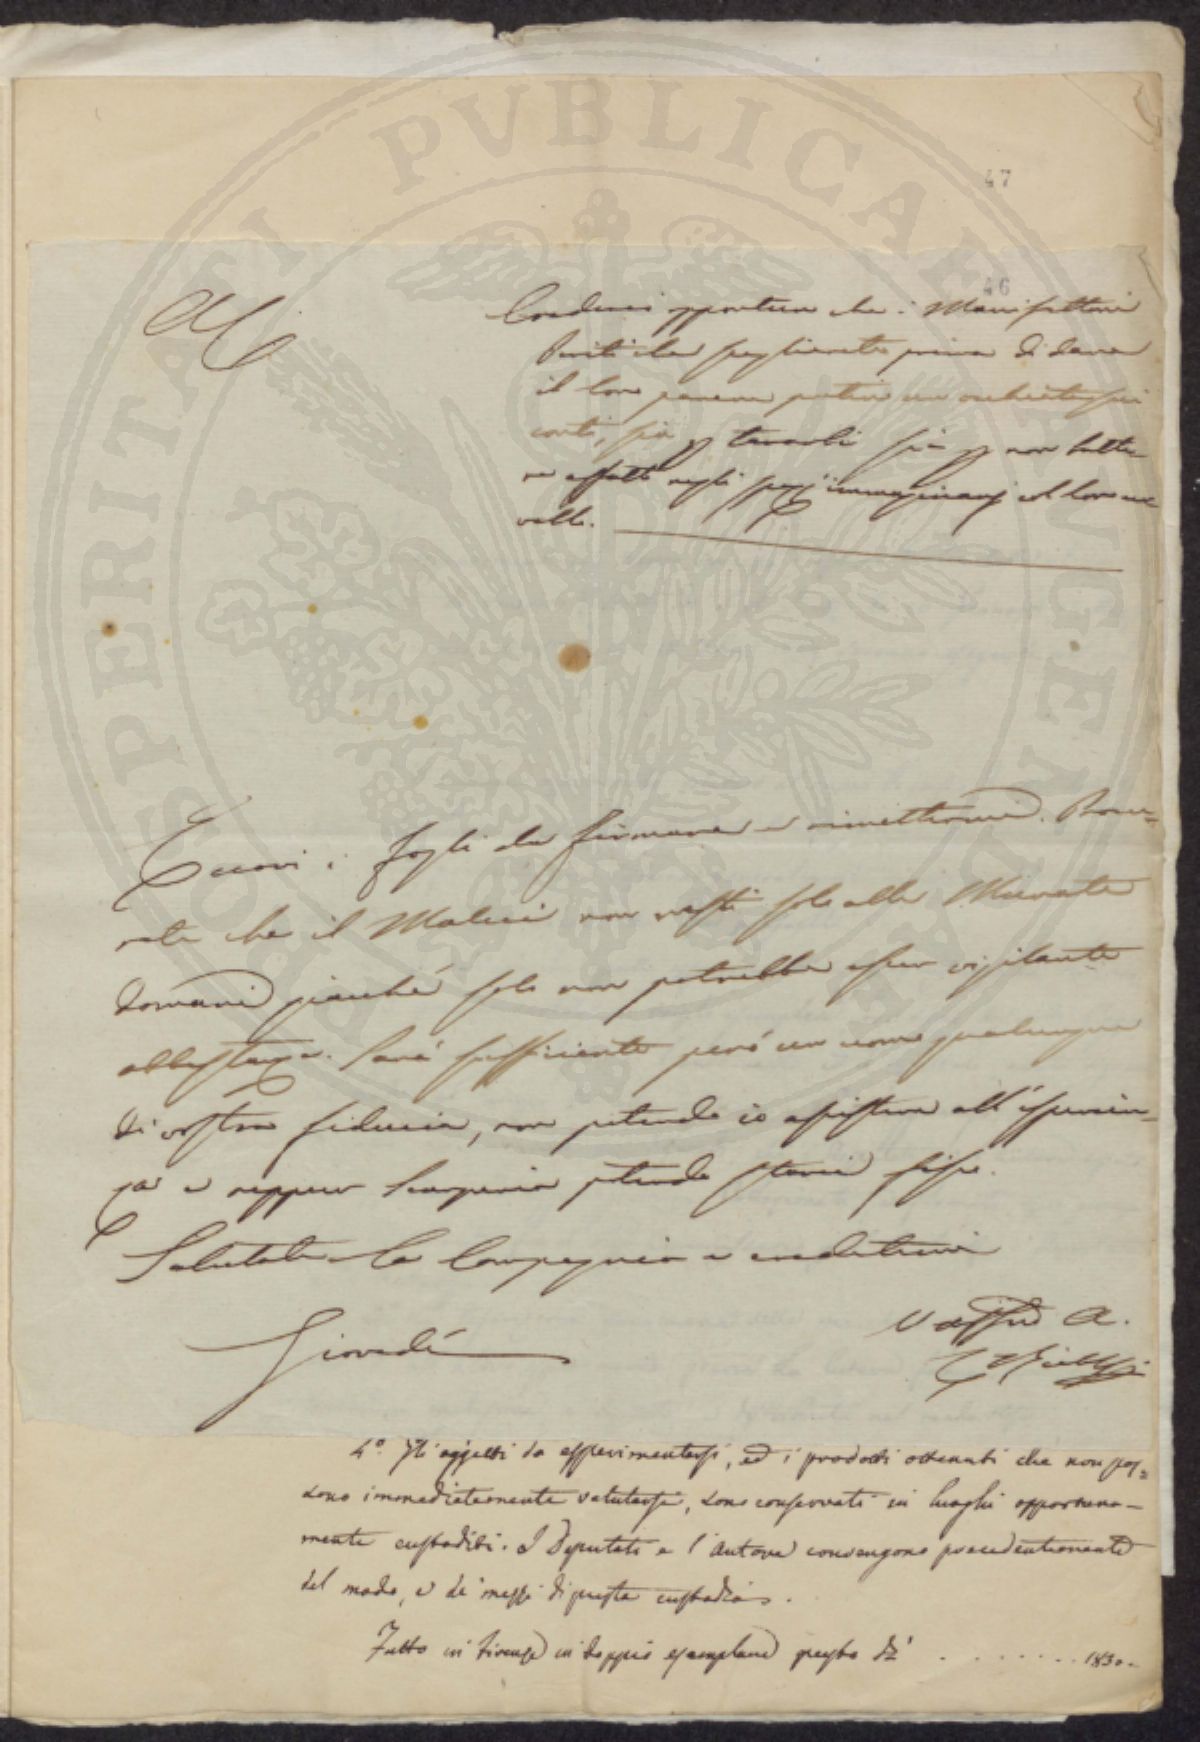 PROSPERITATI PVBLICAE AVGENDAE
47
46
Crederei opportuno che i Manifattori
Periti da sceglierete prima di dare
il loro parere
conti, sia p tenerli sia p non batte-
re affatto negli spazj immaginarj col loro cer-
vello.
Eccovi i fogli da firmare e rimettermi. Procu-
rate che il Malici non resti solo alle Murate
domani giacché solo non potrebbe esser vigilante
abbastanza. Sarà sufficiente però un uomo qualunque
di vostra fiducia, non potendo io assistere all'esperien-
za e neppure potendo starci fisso.
Salutate la Compagnia e credetemi
Giovedì
V. affmo A.
4º. Gli oggetti da esperimentarsi, ed i prodotti ottenuti che non pos=
sono immediatamente valutarsi, sono conservati in luoghi opportuna-
mente custoditi. I Deputati e l'Autore convengono precedentemente
del modo, e de' mezzi di questa custodia.
Fatto in Firenze in doppio esemplare questo dì . . . . . . . 1830.